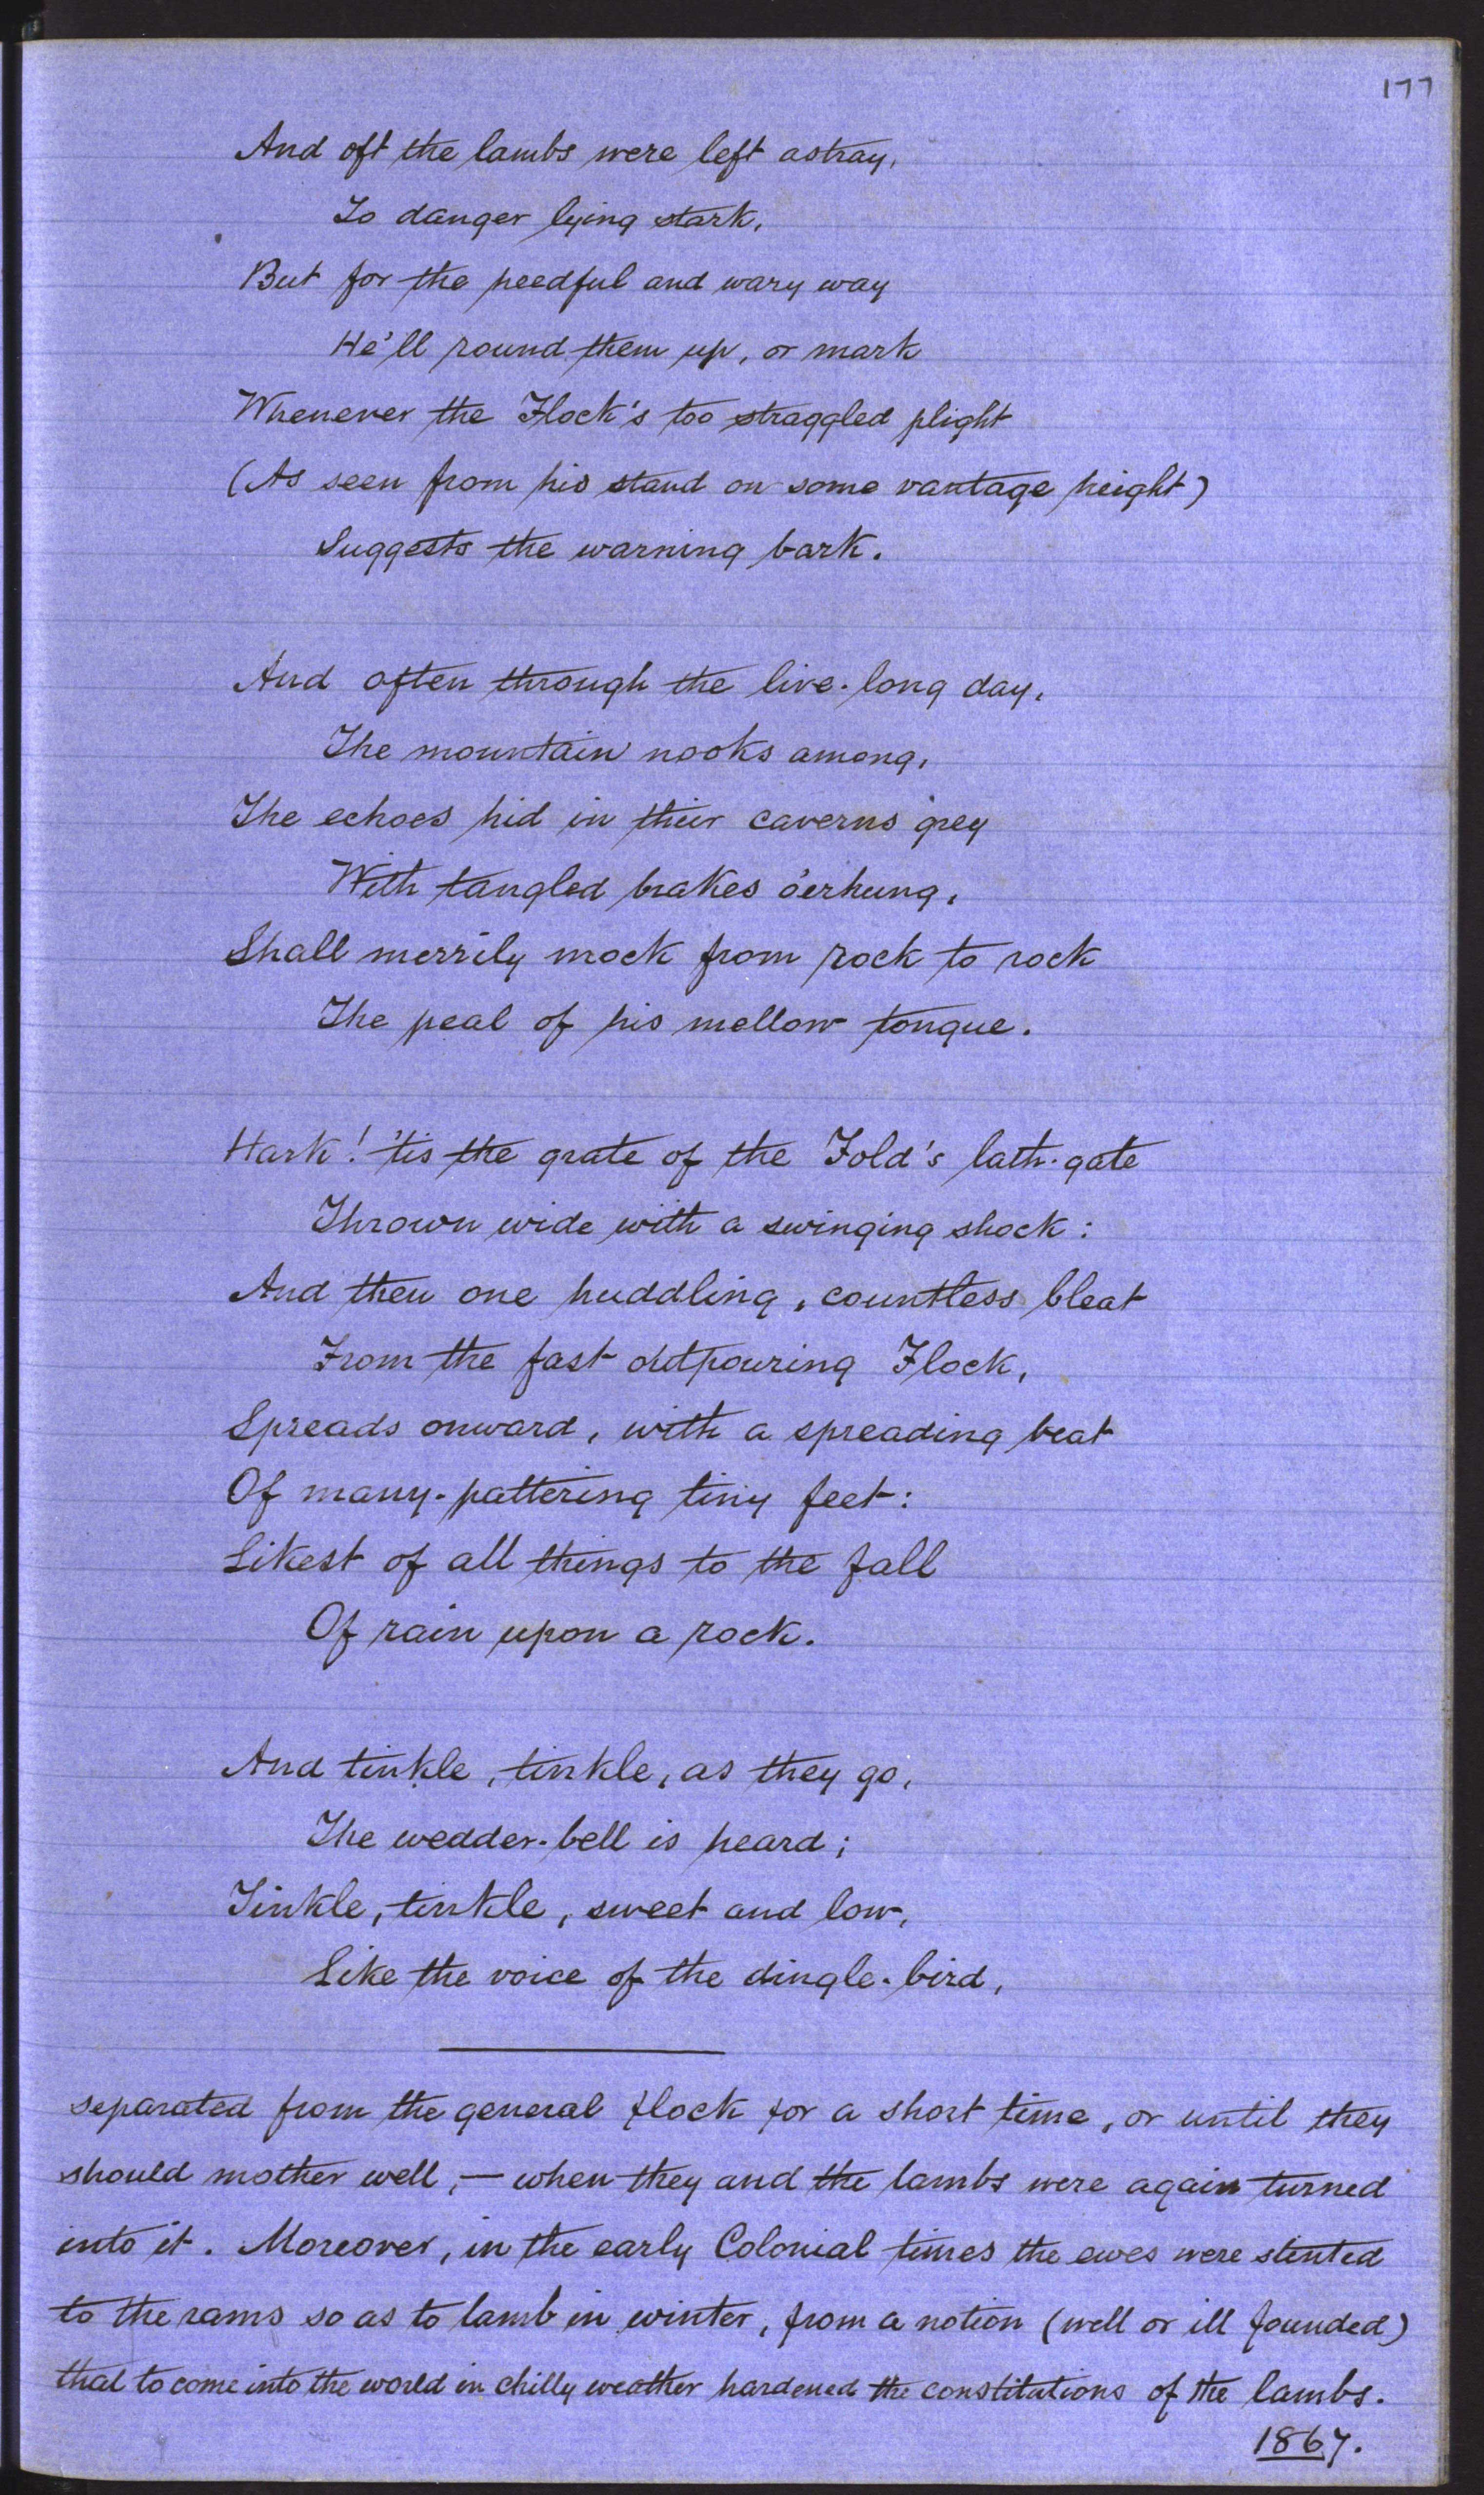 177
And oft the lambs were left astray,
To danger lying stark,
But for the heedful and wary way
He'll round them up, or mark
Whenever the Flock's too straggled plight
(As seen from his stand on some vantage height)
Suggests the warning bark.
And often through the live-long day,
The mountain nooks among,
The echoes hid in their caverns grey
With tangled brakes o'erhung,
Shall merrily mock from rock to rock
The peal of his mellow tongue.
Hark! 'tis the grate of the Fold's lath-gate
Thrown wide with a swinging shock:
And then one huddling, countless bleat
From the fast outpouring Flock,
Spreads onward, with a spreading beat
Of many-pattering tiny feet:
Likest of all things to the fall
Of rain upon a rock.
And tinkle, tinkle, as they go,
The wedder-bell is heard;
Tinkle, tinkle, sweet and low,
Like the voice of the dingle-bird,
separated from the general flock for a short time, or until they
should mother well, — when they and the lambs were again turned
into it. Moreover, in the early Colonial times the ewes were stinted
to the rams so as to lamb in winter, from a notion (well or ill founded)
that to come into the world in chilly weather hardened the constitutions of the lambs.
1867.